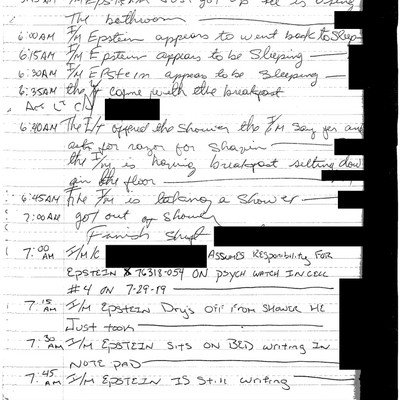 The bathroom
6:00AM I/M Epstein appears to went back to sleep
6:15AM I/M Epstein appears to be sleeping
6:30AM I/M Epstein appears to be sleeping
6:35AM the come with the breakfast
6:40AM The offered the shower the I/M say yes and
for razor for
the I/M is having breakfast sitting down
on the floor
6:45AM The I/M is taking a shower
7:00AM got out of shower
Finish shift
7:00 AM I/M K Assumes Responsibility for
Epstein 76318-054 on psych watch in cell
#4 on 7-29-19
7:15 AM I/M Epstein Drys off from shower he
Just took
7:30 AM I/M Epstein sits on Bed writing in
note pad
7:45 AM I/M Epstein is still writing